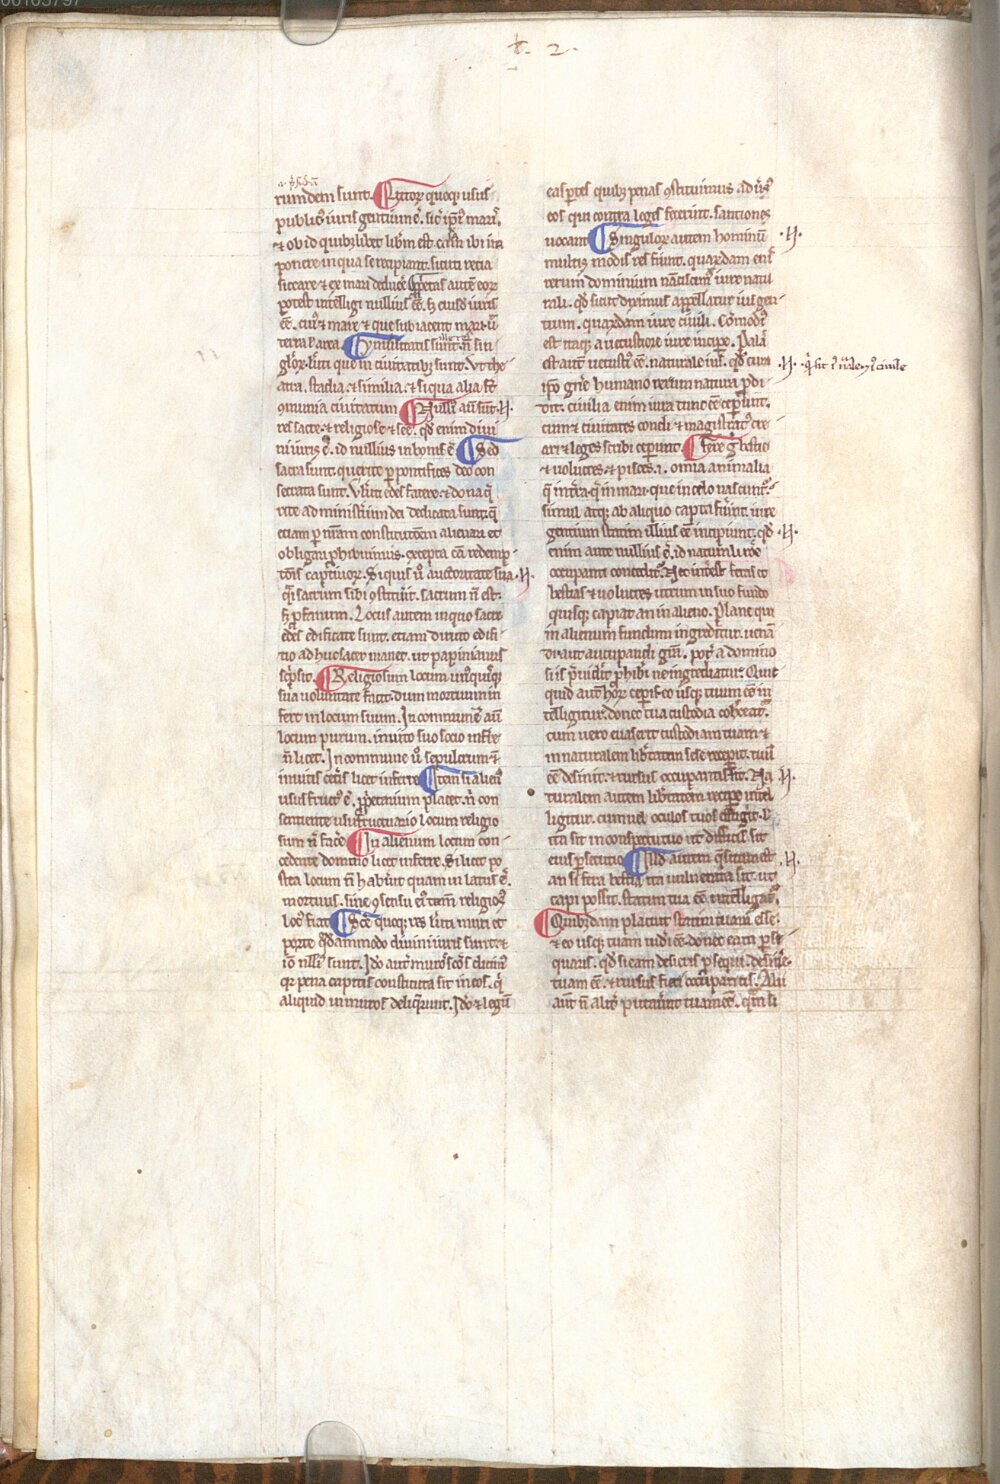 L. 2.
rundem sunt. Litorꝝ quoqꝫ usus
publicꝰ iuris gentium ē. sic̄ ip̄iꝰ maris.
⁊ ob id quibuslibet lib̄m est. casā ibi im
ponere in qua se recipiant. sicuti recia
siccare ⁊ ex mari deducē. Ꝓprietas autē eoꝝ
potest intelligi nulliꝰ eē. sꝫ eiusd̄ iuris
eē. cuiꝰ ⁊ mare ⁊ que subiacent mari
terra ł area. Vniuersitatis sunt. n̄ sin
gloꝝ. ueluti que in ciuitatibꝫ sunt. Vt the
atra. stadia. ⁊ similia. ⁊ si qua alia sūt
ꝯmunia ciuitatum. Nulliꝰ aūt sunt
res sacre. ⁊ religiose ⁊ sc̄e. qd̄ enim diui
ni iuris ē. id nullius in bonis ē. Sed
sacra sunt. que rite ꝑ pontifices deo con
secrata sunt. Vłuti edes sacre. ⁊ dona q̄
rite ad ministium dei dedicata sunt. q̄
etiam ꝑ nr̄am constitutōem alienari et
obligari ꝓhibuimus. excepta cā redemp
tōis captiuoꝝ. Si quis ū auctoritate sua
q̄si sacrum sibi ꝯstituit. sacrum n̄ est.
sꝫ ꝓfanum. Locus autem in quo sacre
edes edificate sunt. etiam diruto edifi
cio adhuc sacer manet. ut papinianus
sc̄psit. Religiosum locum unꝰquisqꝫ
sua uoluntate facit. dum mortuum in
fert in locum suum. In communē aūt
locum purum. inuito suo socio inferre
n̄ licet. In commune ū sepulcrum ⁊
inuitis cetīs licet inferre. Item si alienꝰ
usus fructꝰ ē. ꝓprietarium placet. n̄ con
sentiente usufructuario locum religio
sum n̄ facē. In alienum locum con
cedente domino licet inferre. ⁊ licet po
stea locum n̄ habuit quam illatus ē.
mortuus. sine ꝯsensu eiꝰ tam̄ religiosꝰ
locꝰ fiat. Sc̄e quoqꝫ res łuti muri et
porte qd̄ammodo diuini iuris sunt. ⁊
iō nulliꝰ sunt. Ido aut̄ muros sc̄os dicim
qꝛ pena capitis constituta sit in eos. q̄
aliquid in muros deliq̄runt. Ido ⁊ legum
eas ꝑtes quibꝫ penas ꝯstituimus aduersꝰ
eos qui contra leges fecerint. sanctiones
uocamꝰ. Singuloꝝ autem hominū
multis modis res fiunt. quarꝝdam enī
rerum dominium nāciscimᷣ iure natu
rali. qd̄ sicut diximus appellatur ius gen
tium. quarꝝdam iure ciuili. Cōmodiꝰ
est itaqꝫ a uetustiore iure incipe. Palā
est aut̄ uetustiꝰ eē. naturale ius. qd̄ cum
ip̄o gn̄e humano rerum natura ꝓdi
dit. ciuilia enim iura tunc eē ceperunt.
cum ⁊ ciuitates condi ⁊ magistratꝰ cre
ari ⁊ leges scribi ceperunt. Fere g̊ bestie
⁊ uolucres. ⁊ pisces. i. omīa animalia
q̄ in terra. q̄ in mari. que in celo nascunt.
simul atqꝫ ab aliquo capta fuint. iure
gentium statim illius eē incipiunt. qd̄
enim ante nullius ē. id naturali rōe
occupanti conceditᷣ. Nec int̄est feras
bestias ⁊ uolucres utrum in suo fundo
quisqꝫ capiat. an in alieno. Plane qui
in alienum fundum ingreditur. uenā
di aut aucupandi grā. pot̄ a domino
si is ꝓuiderit ꝓhiberi ne ingrediatur. Quic
quid aut̄ hoꝝ ceperis. eo usqꝫ tuum eē in
telligitur. donec tua custodia cohercet.
cum uero euaserit custodiam tuam ⁊
in naturalem lib̄tatem sese receperit. tuū
eē desinit. ⁊ rursus occupantis fit. Na
turalem autem lib̄tatem recipe intel
ligitur. cum uel oculos tuos effugit. ł
ita sit in conspectu tuo ut difficilis sit
eius ꝑsecutio. Illd̄ autem q̄situm est.
an si fera bestia ita uulnerata sit. ut
capi possit. statim tua eē intelligatᷣ.
Quibꝰdam placuit statim tuam esse.
⁊ eo usqꝫ tuam uideri eē. donec eam ꝑse
quaris. qd̄ si eam desieris ꝑsequi. desinē
tuam eē. ⁊ rursus fieri occupantis. Alii
aūt n̄ alit̄ putauerunt tuam eē. q̄m si